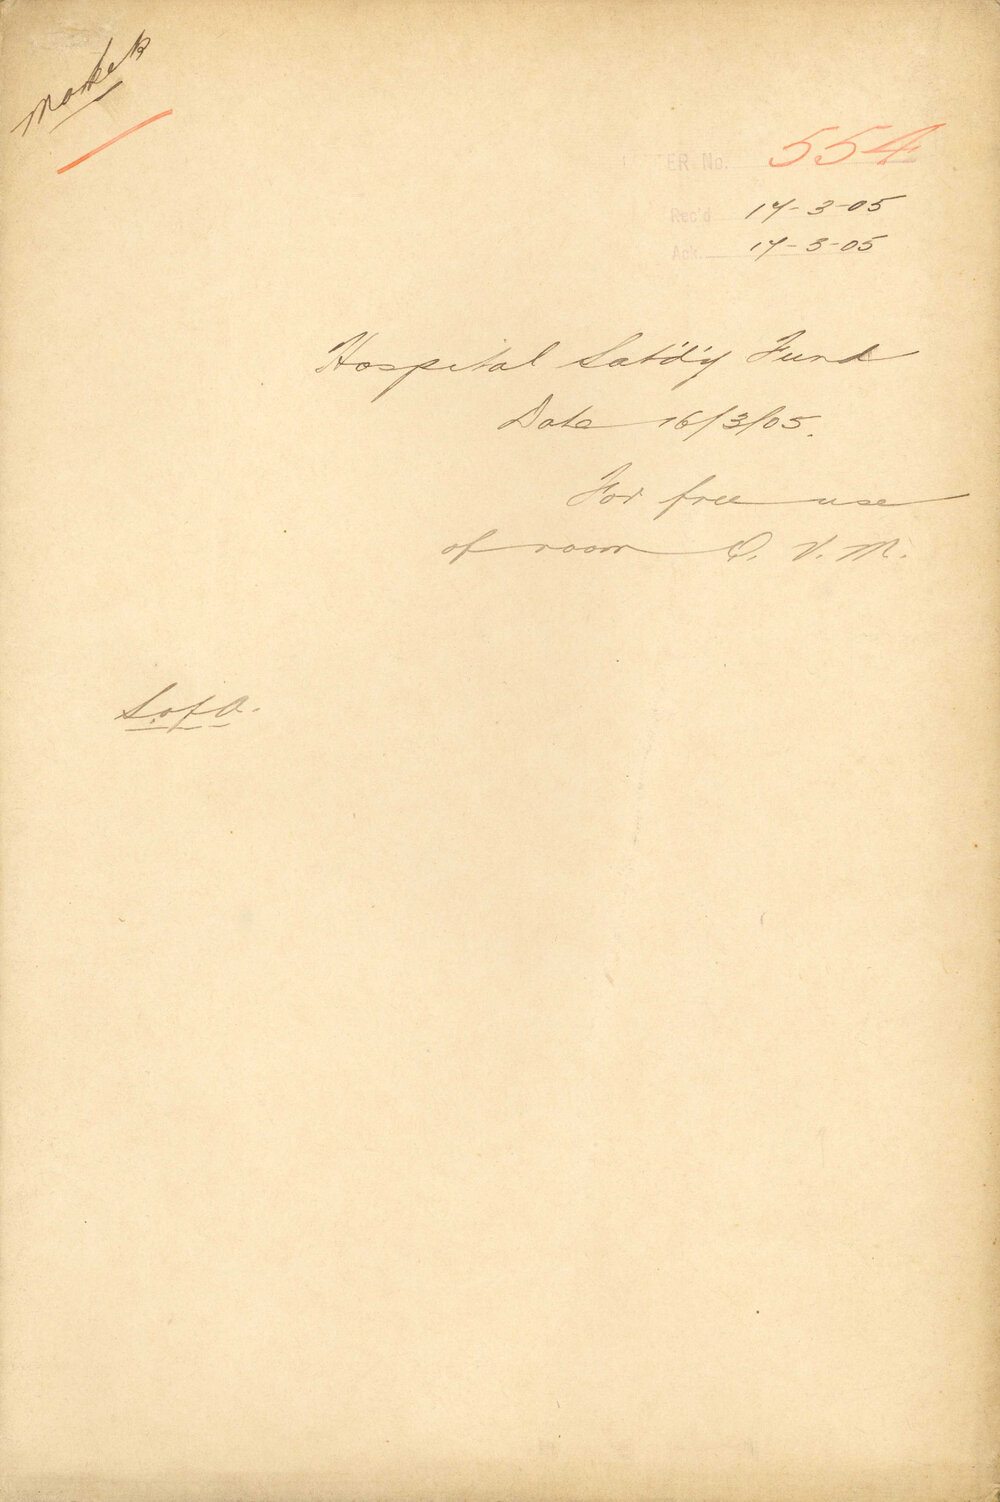 Markets
ER No. 554
Rec'd 17-3-05
Ack. 17-3-05
Hospital Satd'y Fund
Date 16/3/05.
For free use
of room Q. V. M.
S. of A.